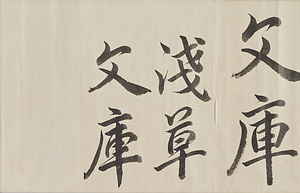 文庫
淺草
文庫